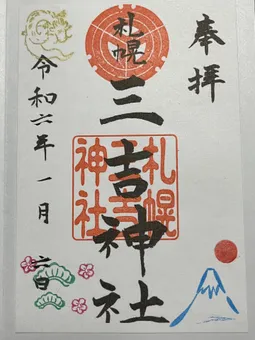 奉拝
札幌
三吉神社
札幌
三吉
神社
令和六年一月六日